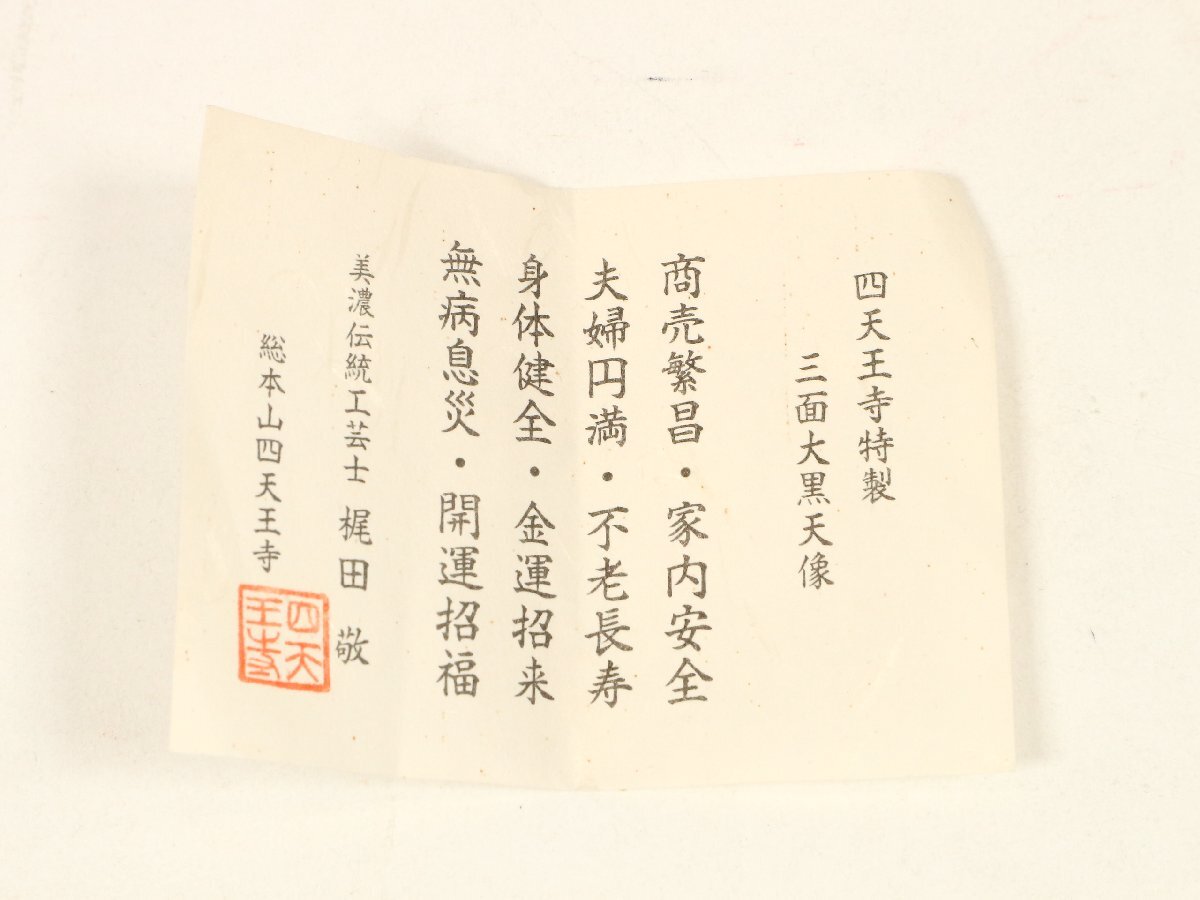 四天王寺特製
三面大黒天像
商売繁昌・家内安全
夫婦円満・不老長寿
身体健全・金運招来
無病息災・開運招福
美濃伝統工芸士 梶田 敬
総本山四天王寺
四天
王寺